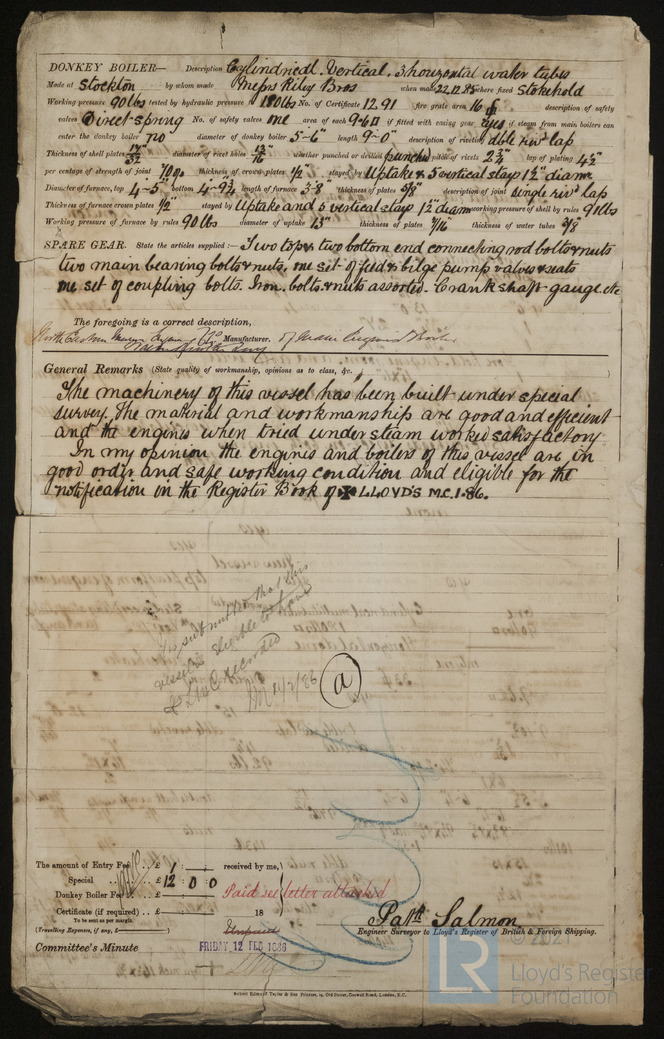 DONKEY BOILER— Description Cylindrical. Vertical. 3 horizontal water tubes
Made at Stockton by whom made Messrs Riley Bros when made 22.12.85 where fixed Stokehold
Working pressure 90lbs tested by hydraulic pressure 180lbs No. of Certificate 1291 fire grate area 16 description of safety
valves Direct spring No. of safety valves one area of each 9.6 if fitted with easing gear yes if steam from main boilers can
enter the donkey boiler no diameter of donkey boiler 5-6" length 9-0" description of riveting dble rivd lap
Thickness of shell plates 17/32 diameter of rivet holes 13/16" whether punched or drilled punched pitch of rivets 2 3/4" lap of plating 4 1/2"
per centage of strength of joint 70 thickness of crown plates 1/2" stayed by Uptake & 5 vertical stays 1 1/2" diam
Diameter of furnace, top 4-5" bottom length of furnace 3-8" thickness of plates 5/8" description of joint single rivd lap
Thickness of furnace crown plates 1/2" stayed by Uptake and 5 vertical stays 1 1/2" diam working pressure of shell by rules 91lbs
Working pressure of furnace by rules 90lbs diameter of uptake 13" thickness of plates 7/16 thickness of water tubes 3/8"
SPARE GEAR. State the articles supplied:— Two top & two bottom end connecting rod bolts & nuts
two main bearing bolts & nuts, one set of feed & bilge pump valves & seats
one set of coupling bolts. Iron. bolts & nuts assorted. Crank shaft gauge. etc
The foregoing is a correct description,
North Eastern Marine Manufacturer. of Main Engines & Boilers
General Remarks (State quality of workmanship, opinions as to class, &c.
The machinery of this vessel has been built under special
survey. The material and workmanship are good and efficient
and the engines when tried under steam worked satisfactory
In my opinion the engines and boilers of this vessel are in
good order and safe working condition and eligible for the
notification in the Register Book of ✠ LLOYD'S M.C. 1.86.
It is submitted that this
vessel is eligible to have
✠ LMC recorded
11/2/86
a
The amount of Entry Fee .. £ 1 : : received by me,
Special .. £ 12 : 0 : 0
Donkey Boiler Fee .. £ : : Paid see letter attached
Certificate (if required) .. £ : : 18
To be sent as per margin.
(Travelling Expenses, if any, £ )
Path Salmon
Engineer Surveyor to Lloyd's Register of British & Foreign Shipping.
Committee's Minute FRIDAY 12 FEB 1886
Robert Edmund Taylor & Son Printers, 19, Old Street, Goswell Road, London, E.C.
© 2021
LR
Lloyd's Register
Foundation